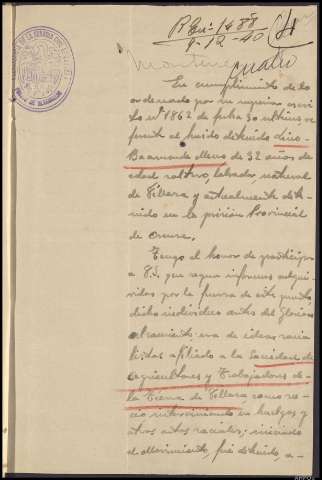 R En: 1488
9-12-40
4
Cuatro
En cumplimiento de lo
ordenado por su superior escrito
nº 1862 de fecha 30 último re-
ferente al huido detenido
Baamonde de 32 años de
edad soltero, labrador natural
de Villara y actualmente dete-
nido en la prisión Provincial
de Orense.
Tengo el honor de participar
a V.S. que según informes adqui-
ridos por la fuerza de este puesto,
dicho individuo antes del Glorioso
alzamiento, era de ideas socia-
listas afiliado a la Sociedad de
Agricultores y Trabajadores de
la Tierra de Villara, como so-
cio interviniendo en huelgas y
otros actos sociales; iniciado
el alzamiento, fué detenido, a-